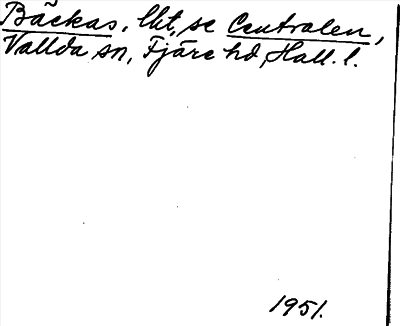 Bäckas, lht, se Centralen,
Vallda sn, Fjäre hd, Hall. l.
1951.